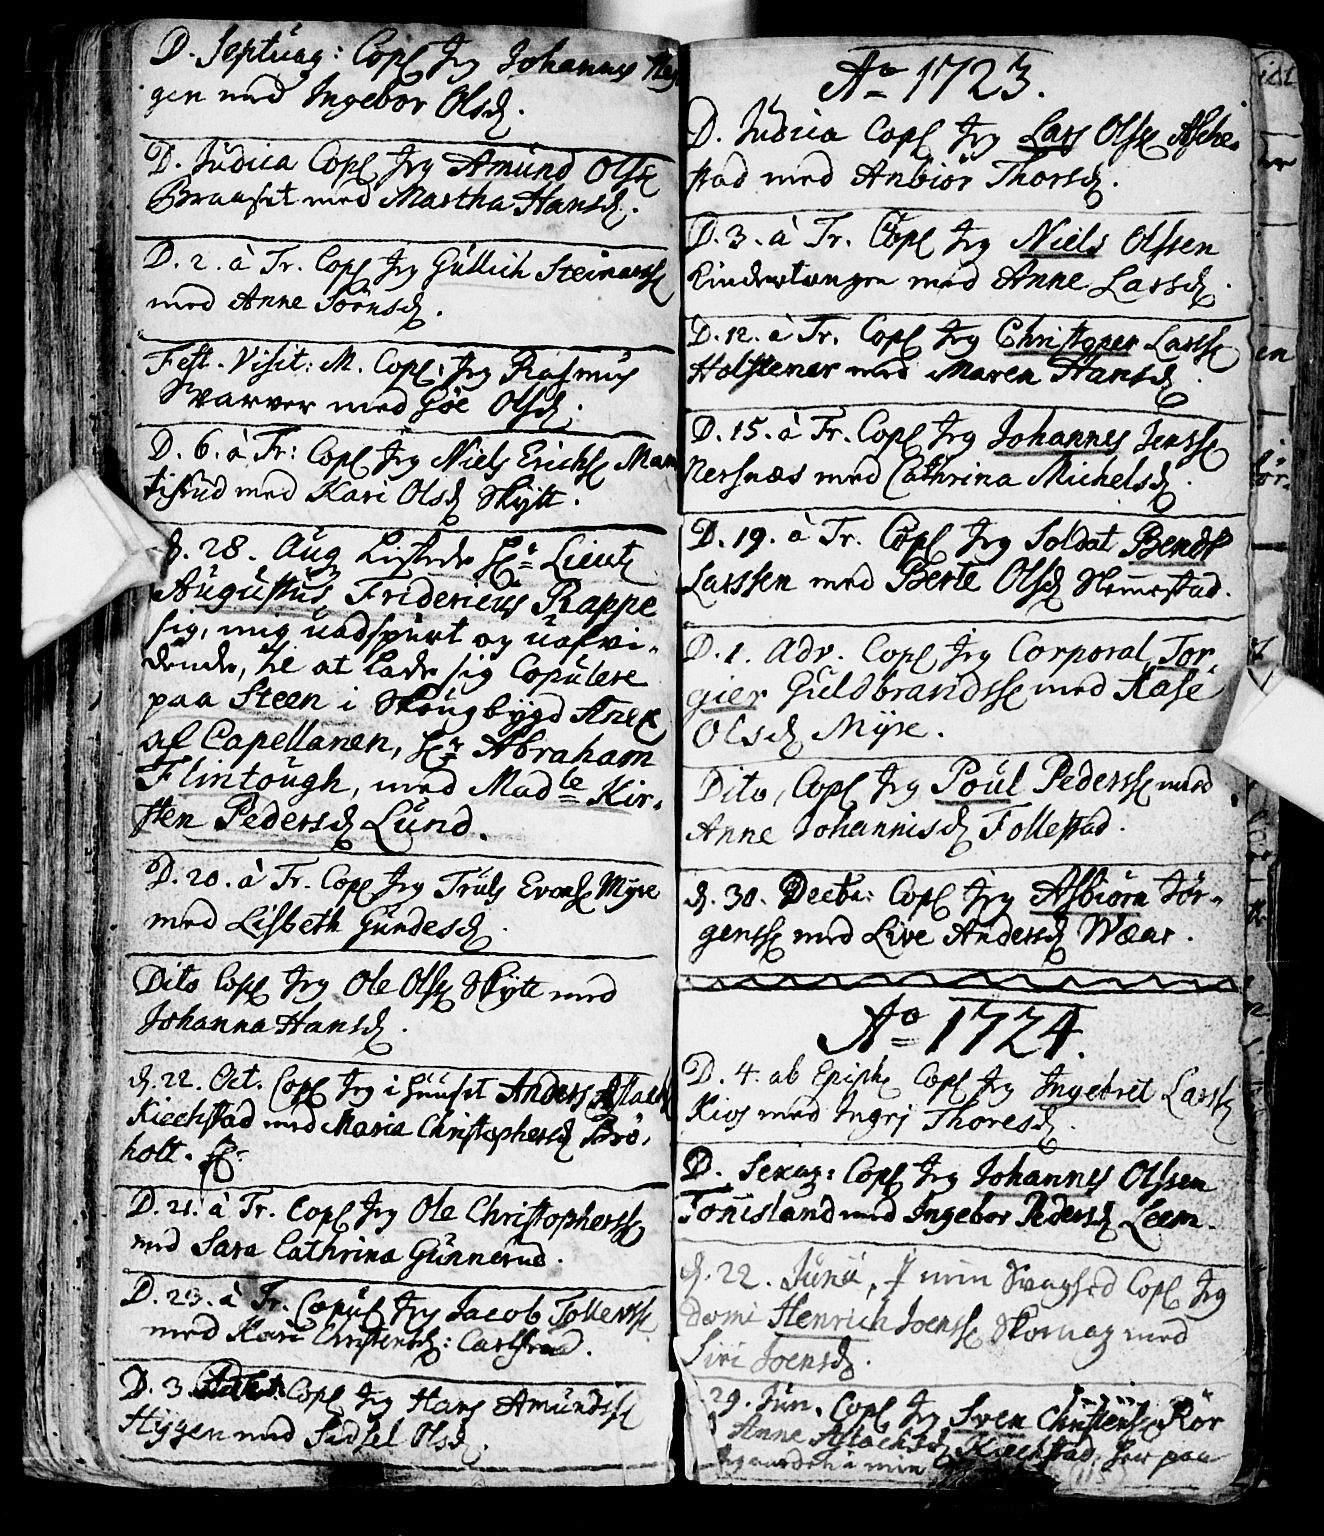 D. Septuag: Copl Jeg Johannes
gen med Ingebor Olsd.
D. Judica Copl Jeg Amund Olss
Braaset med Martha Hansd.
D. 2. à Tr. Copl Jeg Gullich Steinarss
med Anne Sörnsd.
Fest. Visit: M. Copl: Jeg Rasmus
Svarver med Goe Olsd.
D. 6. à Tr: Copl Jeg Niels Erichs
tisrud med Kari Olsd Skytt.
d. 28. Aug Listede Hr Lieut
Augustus Fridericus Rappe
sig, mig uadspurt og uafvi-
dende, til at lade sig Copulere
paa Steen i Skougbygd Anex
af Capellanen, Hr Abraham
Flintough, med Madle Kir-
sten Pedersd Lund.
D. 20. à Tr. Copl Jeg Truls Evens Myre
med Lisbeth Gundesd.
Dito Copl Jeg Ole Olss Skytt med
Johanna Hansd.
d. 22. Oct. Copl Jeg i Huuset Anders Aslach
Kiechstad med Maria Christophersd Brö-
holt.
D. 21. à Tr. Copl Jeg Ole Christopherss
med Sara Cathrina Gunnerud.
D. 23. à Tr. Copul Jeg Jacob Tollerss
med Kari Christensd: Carlsrud.
D. 3 Copl Jeg Hans Amundss
Hygen med Sidsel Olsd.
Ao 1723.
D. Judica Copl Jeg Lars Olss Asche-
stad med Anbiör Thorsd.
D. 3. à Tr. Copl Jeg Niels Olssen
Kindertangen med Anne Larsd.
D. 12. à Tr. Copl Jeg Christoper Larss
Holstener med Maren Hansd.
D. 15. à Tr. Copl Jeg Johannes Jenss
Nersnæs med Cathrina Michelsd.
D. 19. à Tr. Copl Jeg Soldat Bendt
Larssen med Berte Olsd Hemestad.
D. 1. Adv. Copl Jeg Corporal Tor-
gier Guldbrandss med Aase
Olsd Myre.
Dito, Copl Jeg Poul Pederss med
Anne Johannisd Follestad.
d. 30. Decbr: Copl Jeg Asbiörn Jör-
genss med Live Andersd Wæar.
Ao 1724.
D. 4. ab Epiph. Copl Jeg Ingebret Larss
Kios med Ingri Thoresd.
D. Sexag: Copl Jeg Johannes Olssen
Tonisland med Ingebor Pedersd Leem.
d. 22. Junii, i min Svaghed Copl Jeg
domi Henrich Joenss Skomag med
Siri Joensd.
29. Jun. Copl Jeg Sven Christens Rör
Anne Aslachsd Kiechstad, her paa
i min